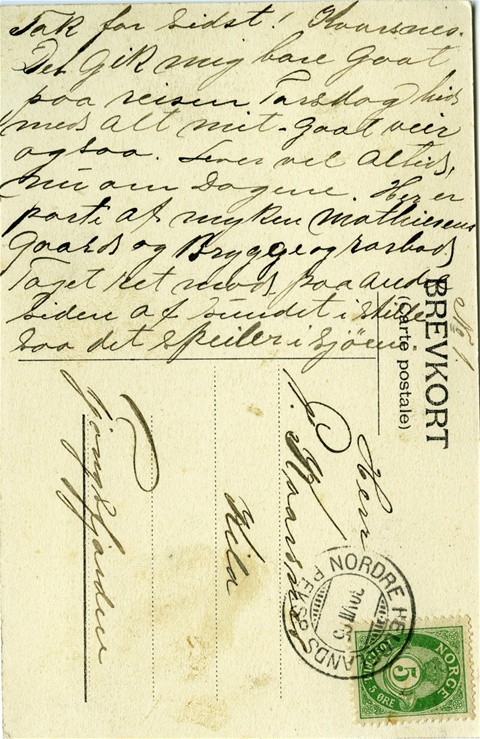 Tak for sidst! Kaarsnes.
Det gik mig bare gaat
paa reisen Torsdag hid
med alt mit. gaat veir
ogsaa. Lever vel altid,
nu om Dagene. Her er
parti af myken Mathiesens
Gaard og Brygge og
Taget ret mod paa andre
siden af sundet i stille
saa det speiler i sjøen
No 1
BREVKORT
(Carte postale)
Herr
P. Kaarsnes
Kila
Tjongsfjorden
NORDRE HELGELANDS
P. EXSP.
NORGE
POSTFRIM
5
5 ØRE